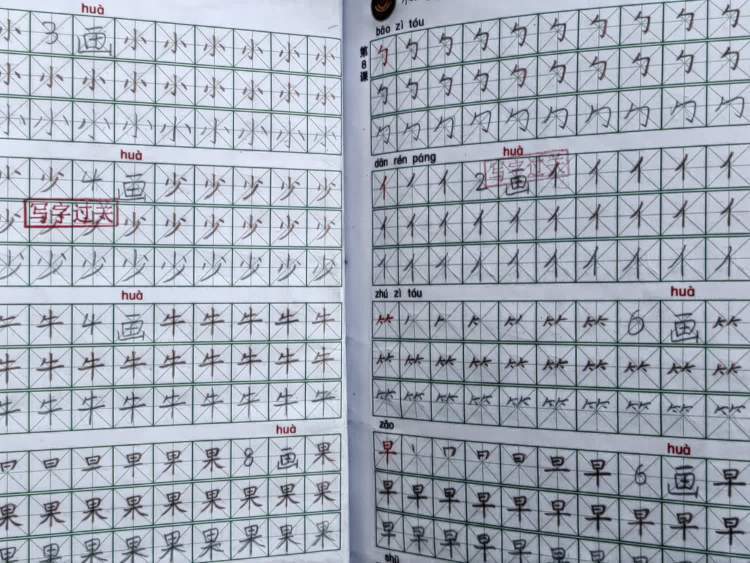 huà
小 3 画 小 小 小 小 小 小
小 小 小 小 小 小 小 小 小
小 小 小 小 小 小 小 小 小
huà
少 4 画 少 少 少 少 少
写字过关
少 少 少 少 少 少 少
少 少 少 少 少 少 少 少 少
huà
牛 4 画 牛 牛 牛 牛 牛
牛 牛 牛 牛 牛 牛 牛 牛 牛
牛 牛 牛 牛 牛 牛 牛 牛 牛
huà
日 旦 早 果 果 8 画 果
果 果 果 果 果 果 果 果 果
果 果 果 果 果 果 果 果 果
bāo zì tóu
第8课
勺 勺 勺 勺 勺 勺 勺 勺 勺
勺 勺 勺 勺 勺 勺 勺 勺 勺
勺 勺 勺 勺 勺 勺 勺 勺 勺
dān rén páng huà
写字过关
亻 丿 亻 2 画 亻 亻 亻 亻 亻
亻 亻 亻 亻 亻 亻 亻 亻 亻 亻
亻 亻 亻 亻 亻 亻 亻 亻 亻 亻
zhú zì tóu huà
⺮ ⺮ 6 画 ⺮
⺮ ⺮ ⺮ ⺮ ⺮ ⺮ ⺮ ⺮ ⺮
⺮ ⺮ ⺮ ⺮ ⺮ ⺮ ⺮ ⺮ ⺮
zǎo huà
早 丨 冂 日 旦 早 6 画 早
早 早 早 早 早 早 早 早 早
早 早 早 早 早 早 早 早 早